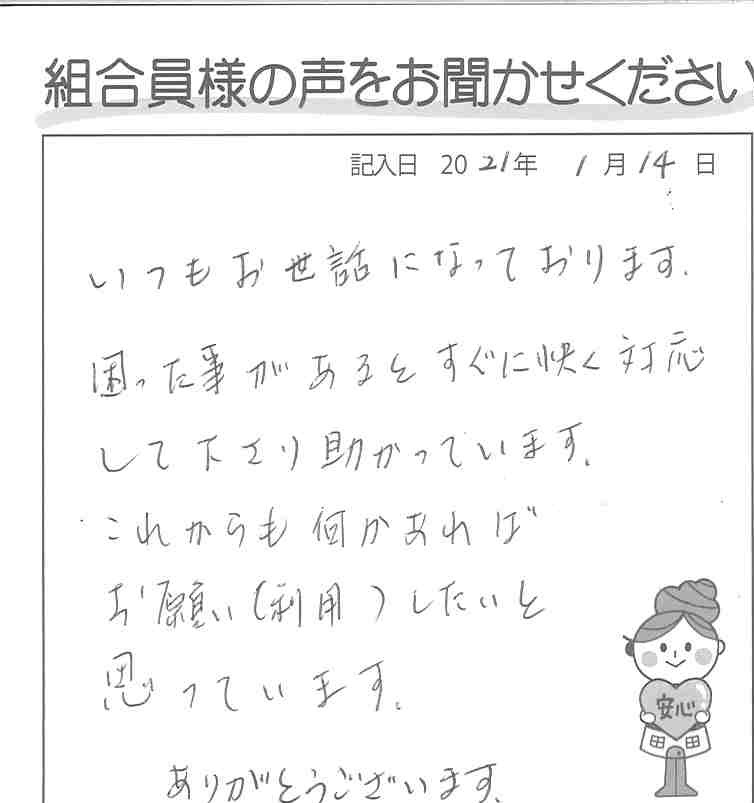 組合員様の声をお聞かせください
記入日 2021年 1月14日
いつもお世話になっております.
困った事があるとすぐに快く対応
して下さり助かっています.
これからも何かあれば
お願い(利用)したいと
思っています.
ありがとうございます.
安心